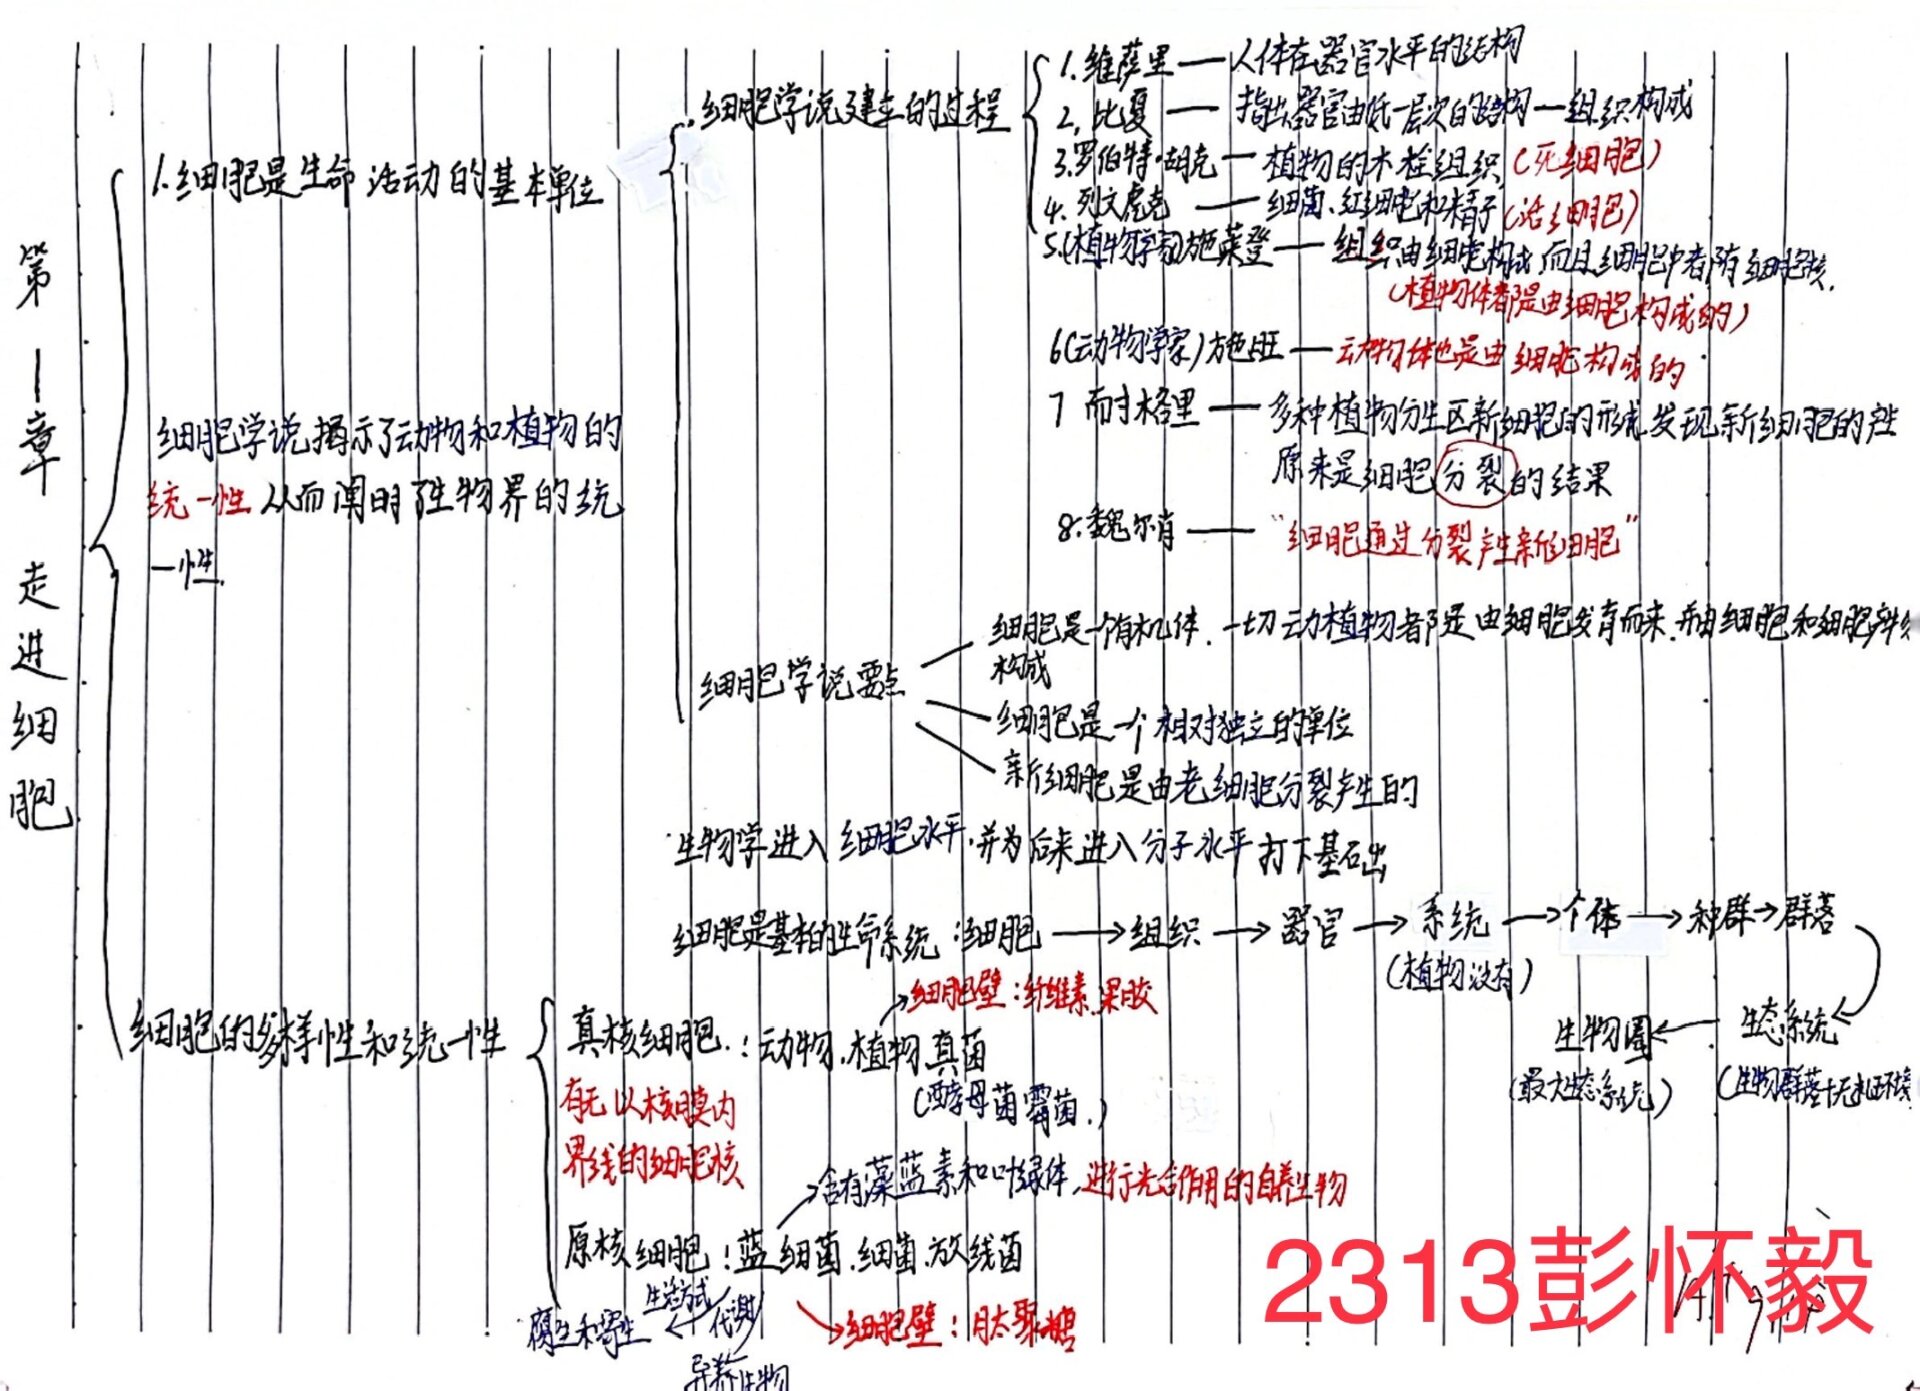 第一章 走进细胞
1.细胞是生命活动的基本单位
细胞学说揭示了动物和植物的
统一性 从而阐明了生物界的统
一性.
细胞学说建立的过程
1.维萨里——人体在器官水平的结构
2,比夏——指出器官由低一层次的结构—组织构成
3.罗伯特·胡克—植物的木栓组织(死细胞)
4.列文虎克——细菌、红细胞和精子(活细胞)
5.(植物学家)施莱登——组织由细胞构成,而且细胞中都有细胞核.
(植物体都是由细胞构成的)
6(动物学家)施旺——动物体也是由细胞构成的
7 耐格里——多种植物分生区新细胞的形成,发现新细胞的产
原来是细胞分裂的结果
8.魏尔肖——"细胞通过分裂产生新细胞"
细胞学说要点
细胞是一个有机体.一切动植物都是由细胞发育而来.并由细胞和细胞产
构成
细胞是一个相对独立的单位
新细胞是由老细胞分裂产生的
生物学进入细胞水平,并为后来进入分子水平打下基础
细胞是基本的生命系统:细胞→组织→器官→系统→个体→种群→群落
(植物没有)
生态系统
(生物群落+无机环境
生物圈
(最大生态系统)
细胞的多样性和统一性
细胞壁:纤维素.果胶
真核细胞.:动物.植物.真菌
(酵母菌霉菌.)
有无以核膜为
界线的细胞核
含有藻蓝素和叶绿体,进行光合作用的自养生物
原核细胞:蓝细菌.细菌.放线菌
细胞壁:肽聚糖
生活方式
代谢
腐生和寄生
异养生物
2313彭怀毅